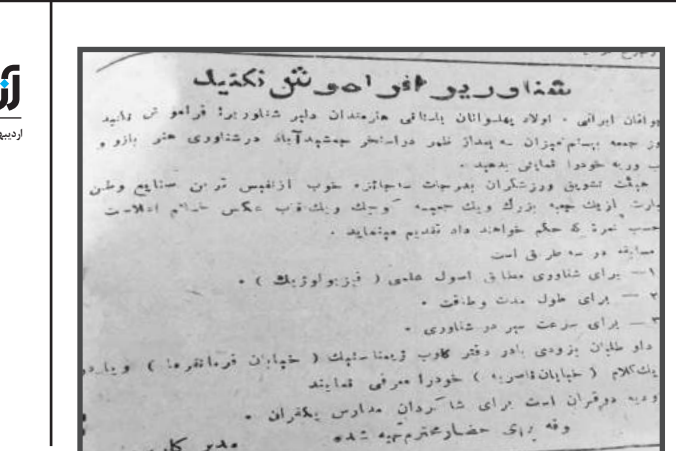 شناوری را فراموش نکنید
جوانان ایرانی . اولاد پهلوانان باستانی هنرمندان دلیر شناوری را فراموش ننمائید
روز جمعه بیستم میزان سه بعداز ظهر در استخر جمشیدآباد در شناوری هنر بازو و
خودرا نمایش بدهید .
هیئت تشویق ورزشکاران بدرجات سه جائزه خوب از نفیس ترین صنایع وطن
عبارت از یك جعبه بزرك و یك جعبه كوچك و یك قاب عكس خاتم اعلاست
حسب نمره که حکم خواهند داد تقدیم مینماید .
مسابقه در سه طریق است
۱ — برای شناوری مطابق اصول علمی ( فیزیولوژیك ) .
۲ — برای طول مدت وطاقت .
۳ — برای سرعت سیر در شناوری .
داوطلبان بزودی بادر دفتر کلوب ژیمناستیك ( خیابان فرمانفرما ) و یا در
( خیابان ناصریه ) خودرا معرفی نمایند
ودیه دوقران است برای شاگردان مدارس یکقران .
وقه برای حضار محترم تهیه شده
مدیر